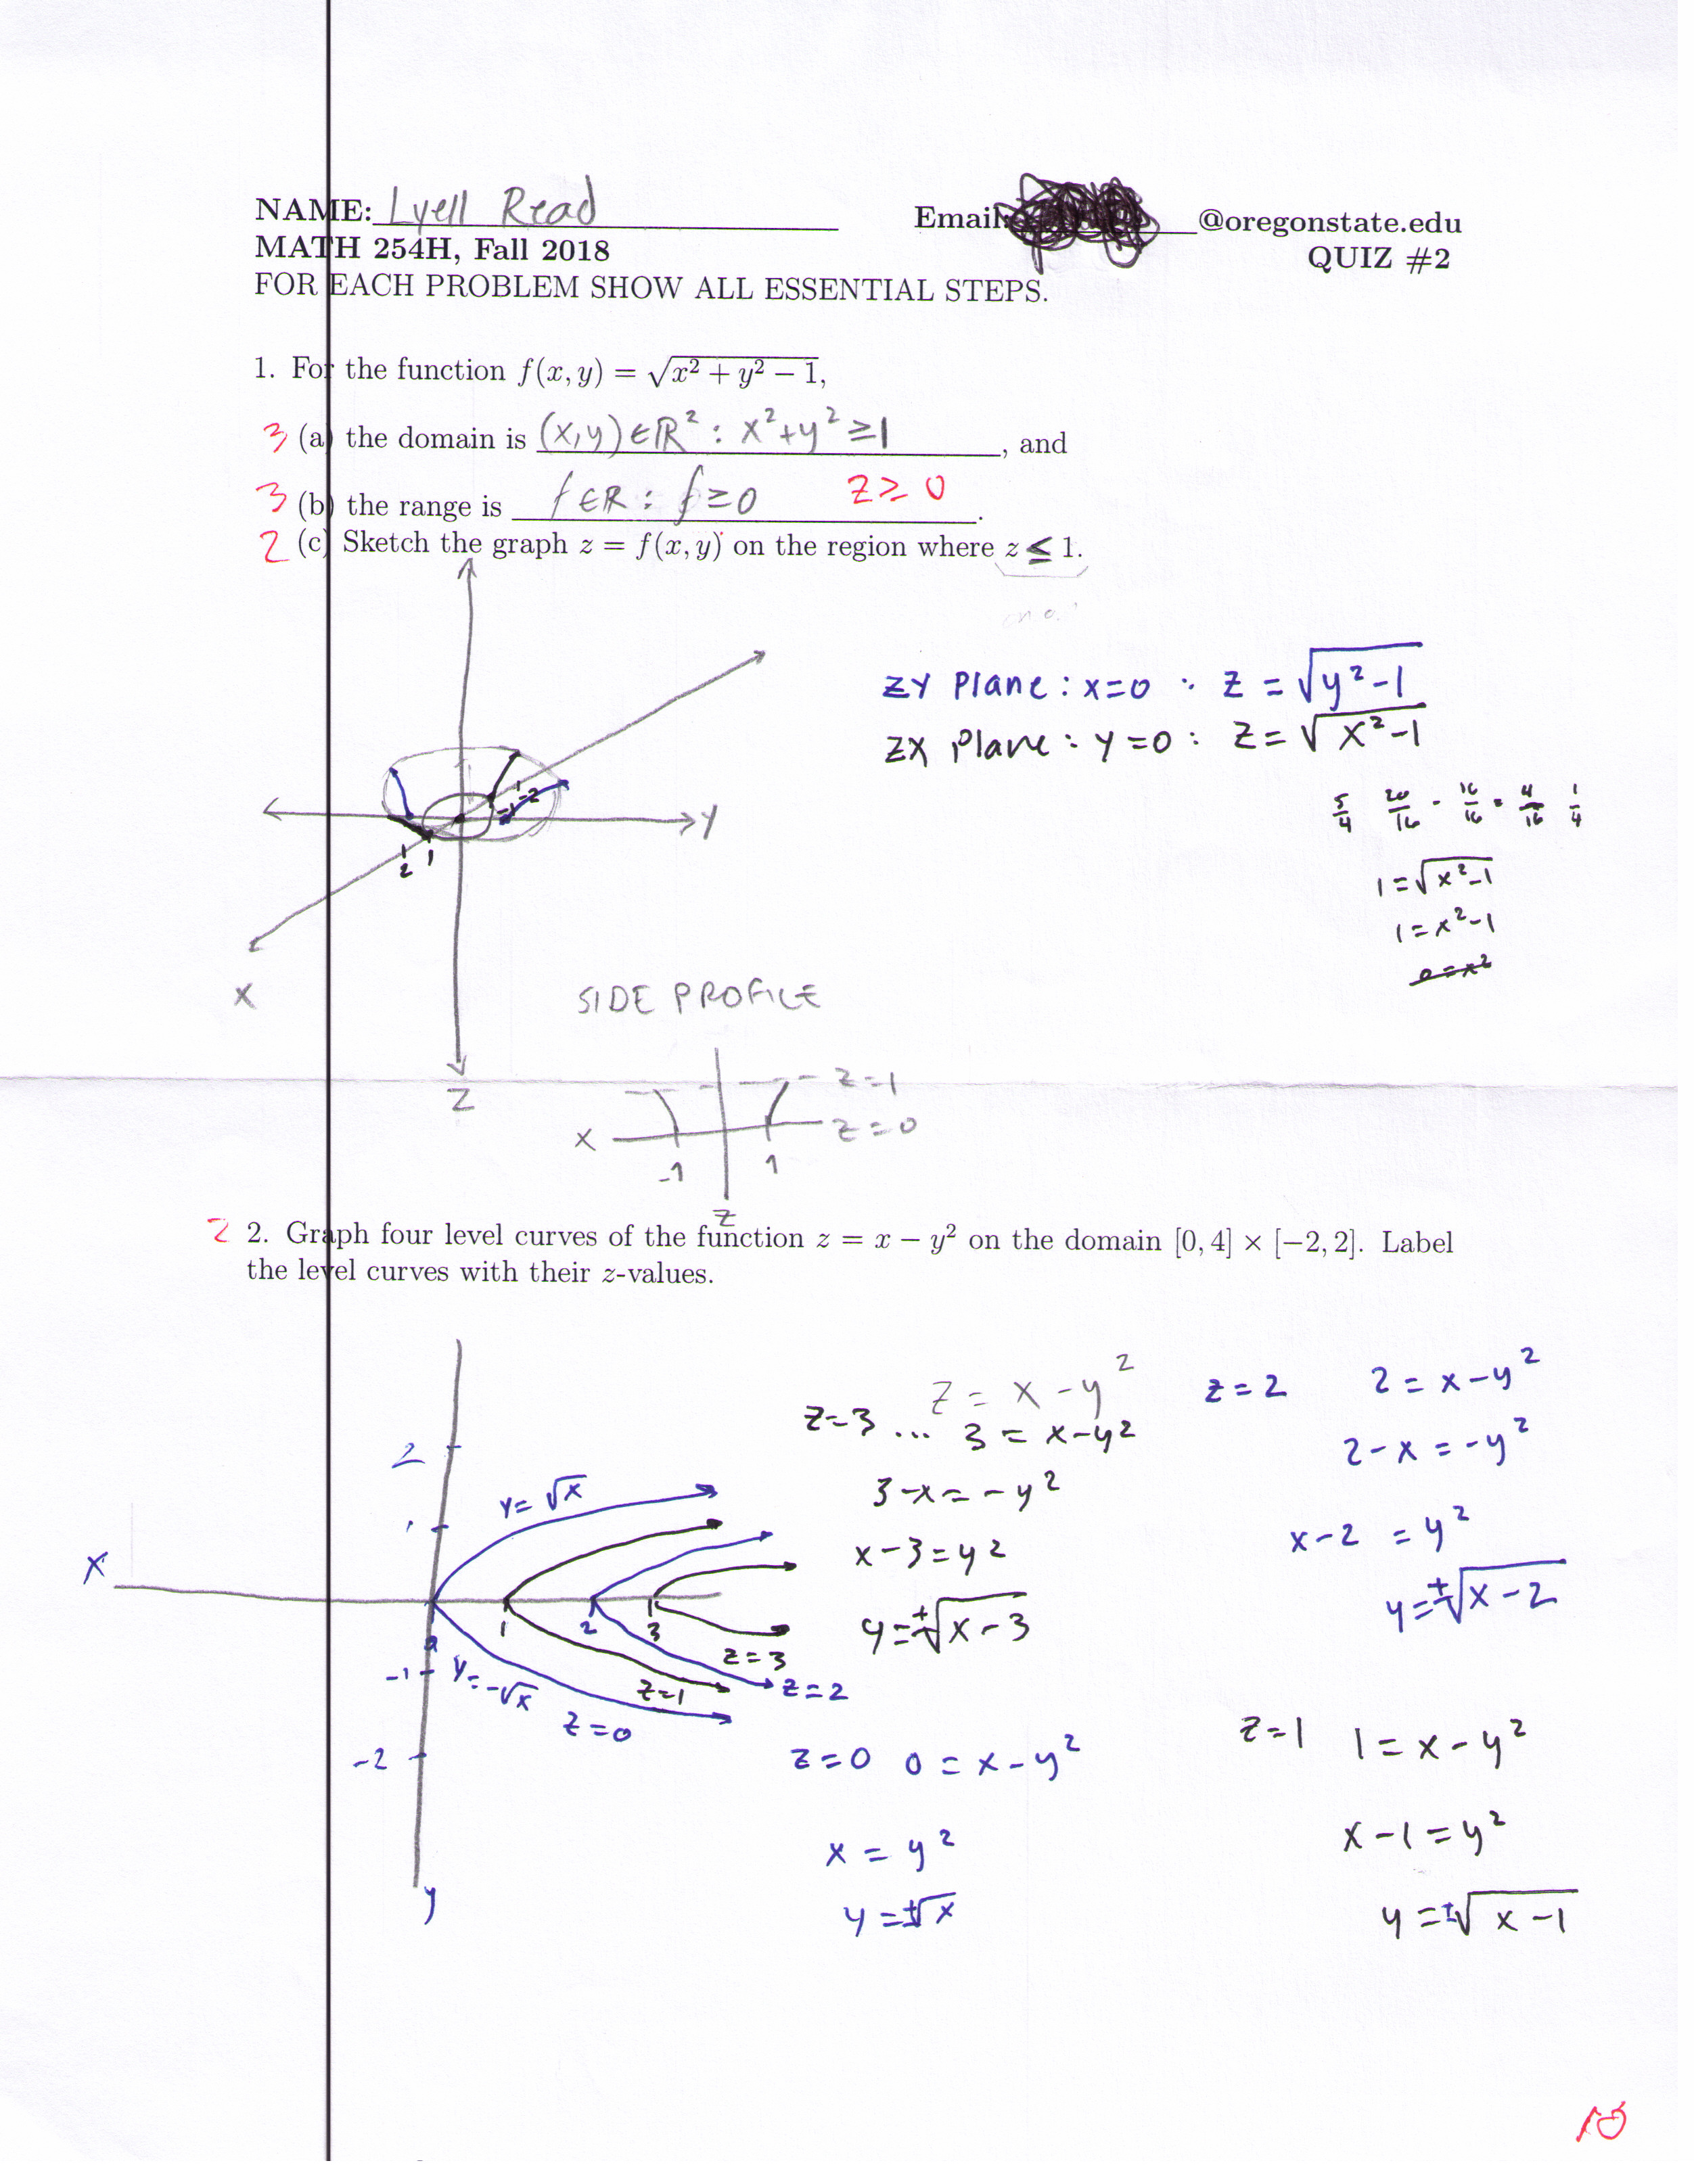 NAME: Lyell Read Email: @oregonstate.edu
MATH 254H, Fall 2018 QUIZ #2
FOR EACH PROBLEM SHOW ALL ESSENTIAL STEPS.
1. For the function f(x, y) = √(x² + y² − 1),
3 (a) the domain is (x,y) ∈ ℝ² : x²+y² ≥ 1, and
3 (b) the range is f ∈ ℝ : f ≥ 0. z ≥ 0
2 (c) Sketch the graph z = f(x, y) on the region where z ≤ 1.
ZY Plane: x=0 : z = √(y²-1)
ZX Plane: y=0 : z = √(x²-1)
-1 -2
Y
1
2
5/4 20/16 - 16/16 = 4/16 1/4
1 = √(x²-1)
1 = x²-1
0 = x²
X
SIDE PROFILE
Z
z=1
X z=0
-1 1
Z
2 2. Graph four level curves of the function z = x − y² on the domain [0, 4] × [−2, 2]. Label
the level curves with their z-values.
z = x - y²
z=3 ... 3 = x-y²
3-x = -y²
x-3 = y²
y = ±√(x-3)
z=2 2 = x-y²
2-x = -y²
x-2 = y²
y = ±√(x-2)
2
y = √x
1
X
0 1 2 3
-1 y = -√x
z=3
z=1 z=2
z=0
-2
y
z=0 0 = x-y²
x = y²
y = ±√x
z=1 1 = x-y²
x-1 = y²
y = ±√(x-1)
10